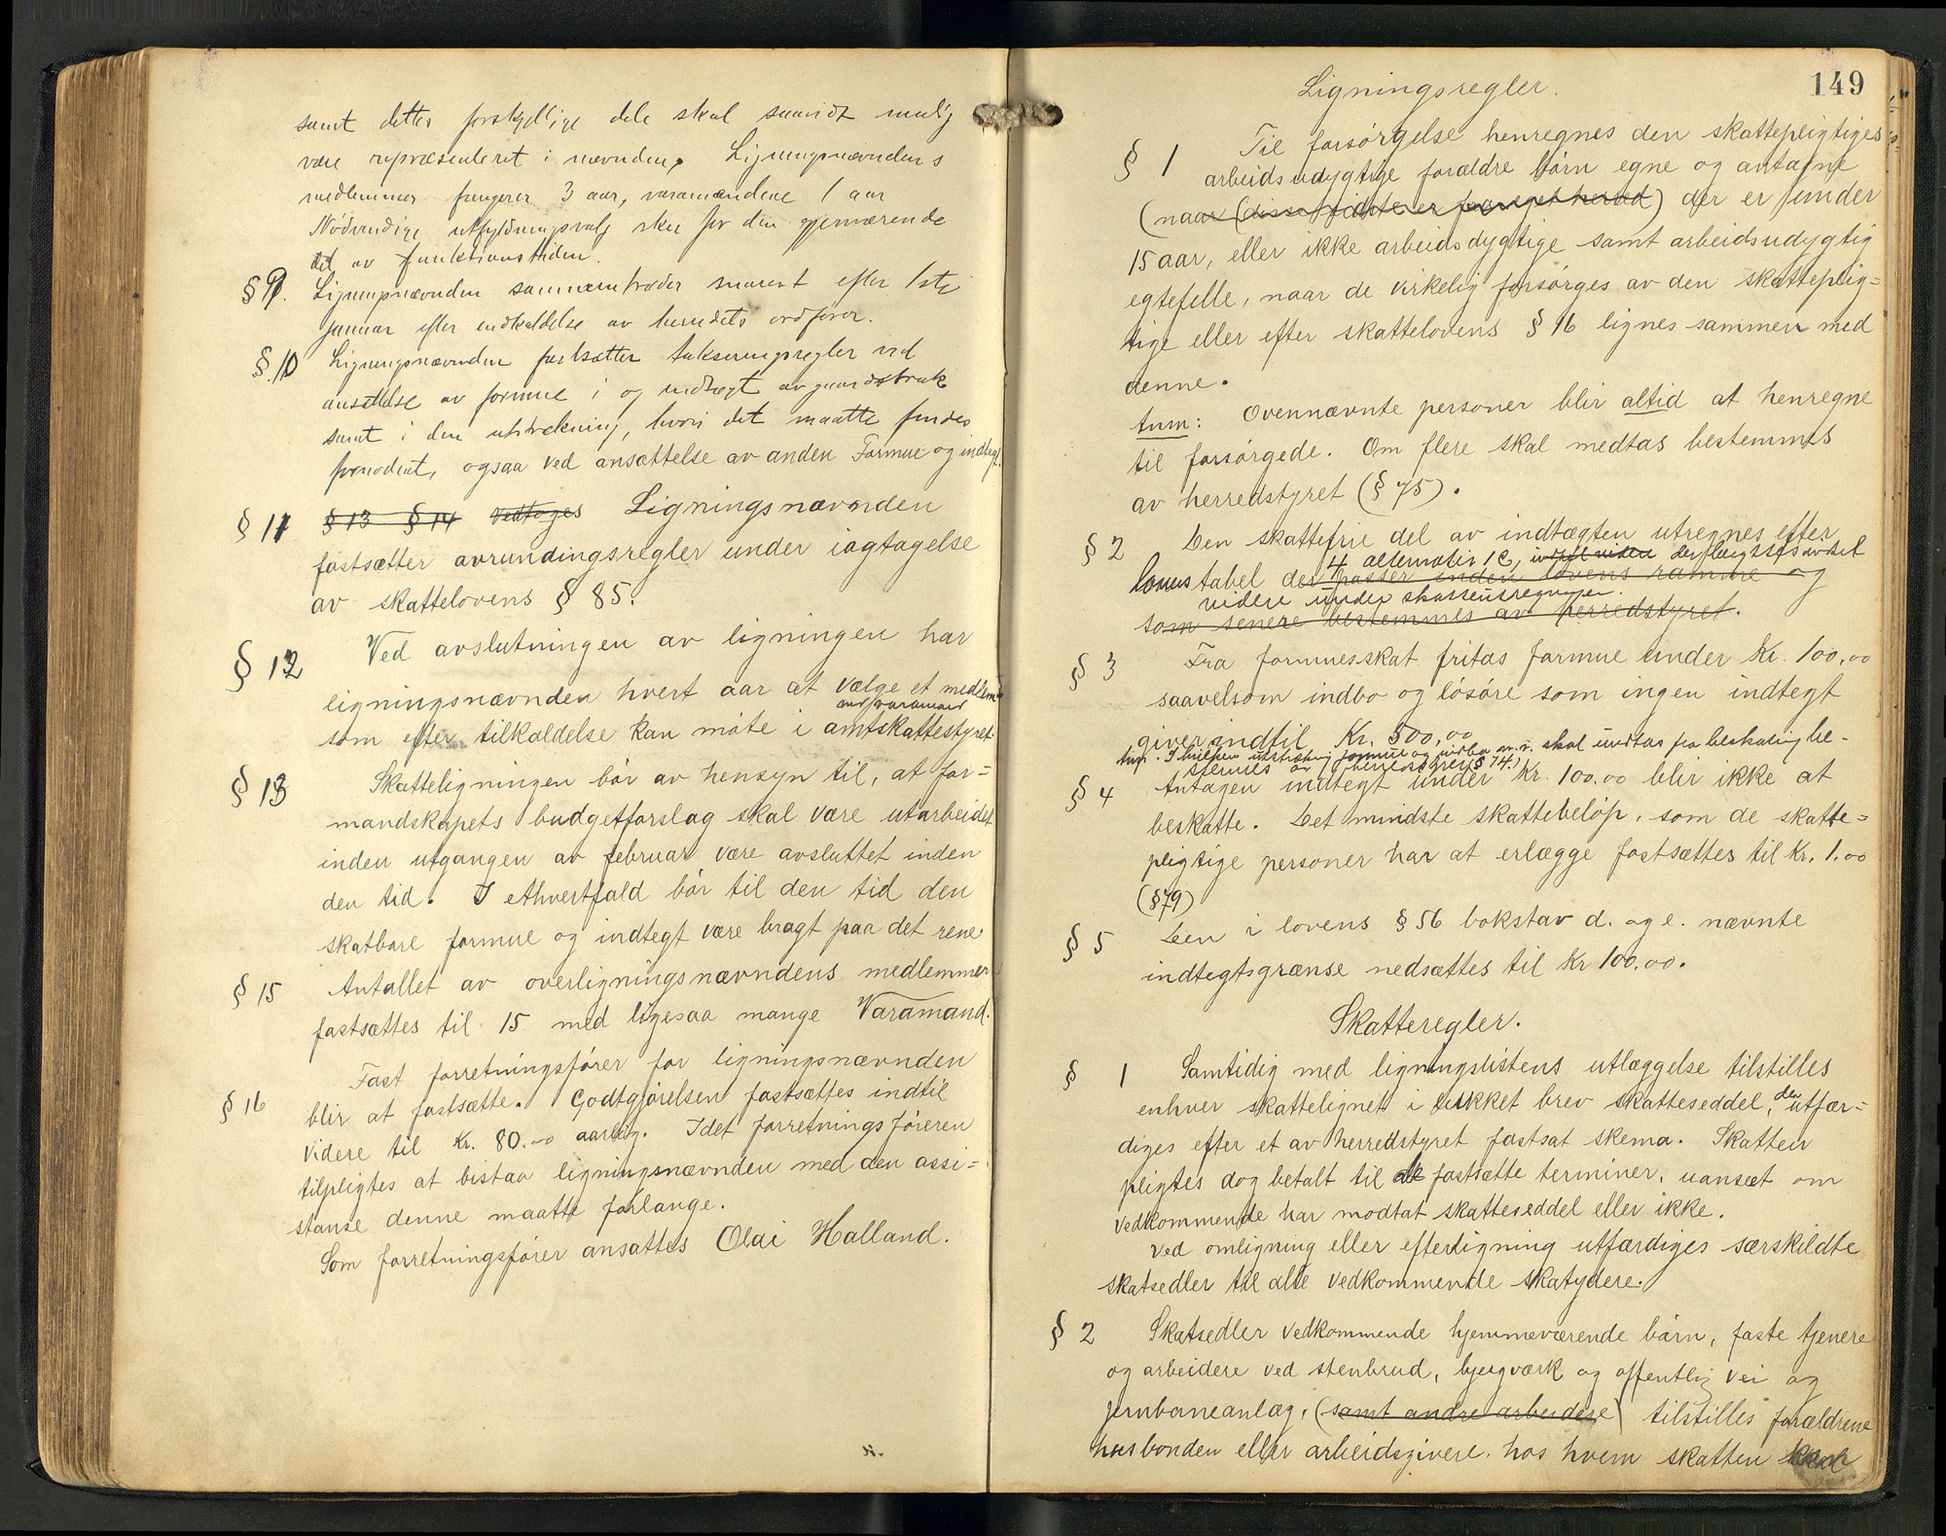 samt dettes forskjellige dele skal saavidt mulig
være repræsenteret i nævnden. Ligningsnævndens
medlemmer fungerer 3 aar, varamændene 1 aar
Nödvendige utfyldningsvalg sker for den gjenværende
del av funktionstiden.
§ 9. Ligningsnævnden sammentræder snarest efter 1ste
januar efter indkaldelse av herredets ordförer.
§. 10 Ligningsnævnden fastsætter takseringsregler ved
ansettelse av formue i og indtægt av gaardsbruk
samt i den utstrækning, hvori det maatte findes
fornödent, ogsaa ved ansættelse av anden Formue og indtegt.
§ 11 §13 §14 vedtoges Ligningsnævnden
fastsætter avrundingsregler under iagtagelse
av skattelovens § 85.
§ 12 Ved avslutningen av ligningen har
ligningsnævnden hvert aar at vælge et medlem
med varamand
som efter tilkaldelse kan möte i amtskattestyret.
§ 13 Skatteligningen bör av hensyn til, at for=
mandskapets budgetforslag skal være utarbeidet
inden utgangen av februar være avsluttet inden
den tid. I ethvertfald bör til den tid den
skatbare formue og indtegt være bragt paa det rene
§ 15 Antallet av overligningsnævndens medlemmer
fastsættes til 15 med ligesaa mange Varamænd.
Fast forretningsförer for ligningsnævnden
§ 16 blir at fastsætte. Godtgjörelsen fastsættes indtil
videre til Kr. 80.00 aarlig. Idet forretningsföreren
tilpligtes at bistaa ligningsnævnden med den assi=
stanse denne maatte forlange.
Som forretningsförer ansattes Olai Halland.
149
Ligningsregler.
§ 1 Til forsörgelse henregnes den skattepligtiges
arbeidsudygtige forældre börn egne og antagne
(naar (disse sidste er forsørget herved) der er under
15 aar, eller ikke arbeidsdygtige samt arbeidsudygtig
egtefelle, naar de virkelig forsörges av den skatteplig=
tige eller efter skattelovens § 16 lignes sammen med
denne.
Anm: Ovennævnte personer blir altid at henregne
til forsörgede. Om flere skal medtas bestemmes
av herredstyret (§ 75).
§ 2 Den skattefrie del av indtægten utregnes efter
4 alternativ 1C, der lægges
lovens tabel der passer inden lovens ramme og
videre under skatteutregningen.
som senere bestemmes av herredstyret.
§ 3 Fra formuesskat fritas formue under Kr. 100,00
saavelsom indbo og lösöre som ingen indtegt
giver indtil Kr. 500,00
Anm. I hvilken utstrækning formue og indbo m.v. skal undtas fra beskatning be-
stemmes av herredstyret § 74.)
§ 4 Antagen indtegt under Kr. 100.00 blir ikke at
beskatte. Det mindste skattebelöp, som de skatte=
pligtige personer har at erlægge fastsættes til Kr. 1.00
(§79)
§ 5 Den i lovens § 56 bokstav d. og e. nævnte
indtegtsgrænse nedsættes til Kr 100.00.
Skatteregler.
§ 1 Samtidig med ligningslistens utlæggelse tilstilles
enhver skattelignet i lukket brev skatteseddel, der utfær=
diges efter et av herredstyret fastsat skema. Skatten
pligtes dog betalt til de fastsætte terminer, uanset om
vedkommende har modtat skatteseddel eller ikke.
Ved omligning eller efterligning utfærdiges særskildte
skatsedler til alle vedkommende skatydere.
§ 2 Skatsedler vedkommende hjemmeværende börn, faste tjenere
og arbeidere ved stenbrud, bjergværk og offentlig vei og
jernbaneanlæg, (samt andre arbeidere) tilstilles forældrene
husbonden eller arbeidsgivere, hos hvem skatten skal